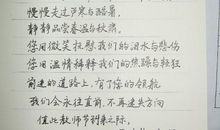 慢慢走过严寒与酷暑
静静品尝春温与秋肃
您用微笑抚慰我们的泪水与悲伤
您用温情释释我们的焦躁与轻狂
前进的道路上，有了您的领航
我们会永往直前，不再迷失方向
值此教师节到来之际，